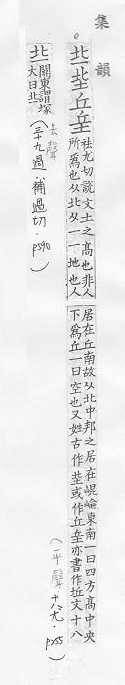 集韻
。𠀌𡊣丘坵
祛尤切說文土之高也非人
所爲也从北从一一地也人
居在丘南故从北中邦之居在崐崘東南一曰四方高中央
下爲丘一曰空也又姓古作𡊣或作坵亦書作丠文十八
(平聲 十八尤 · p255)
𠀌
關東謂塚
大曰𠀌
去聲
(三十九過 · 補過切 · p590)